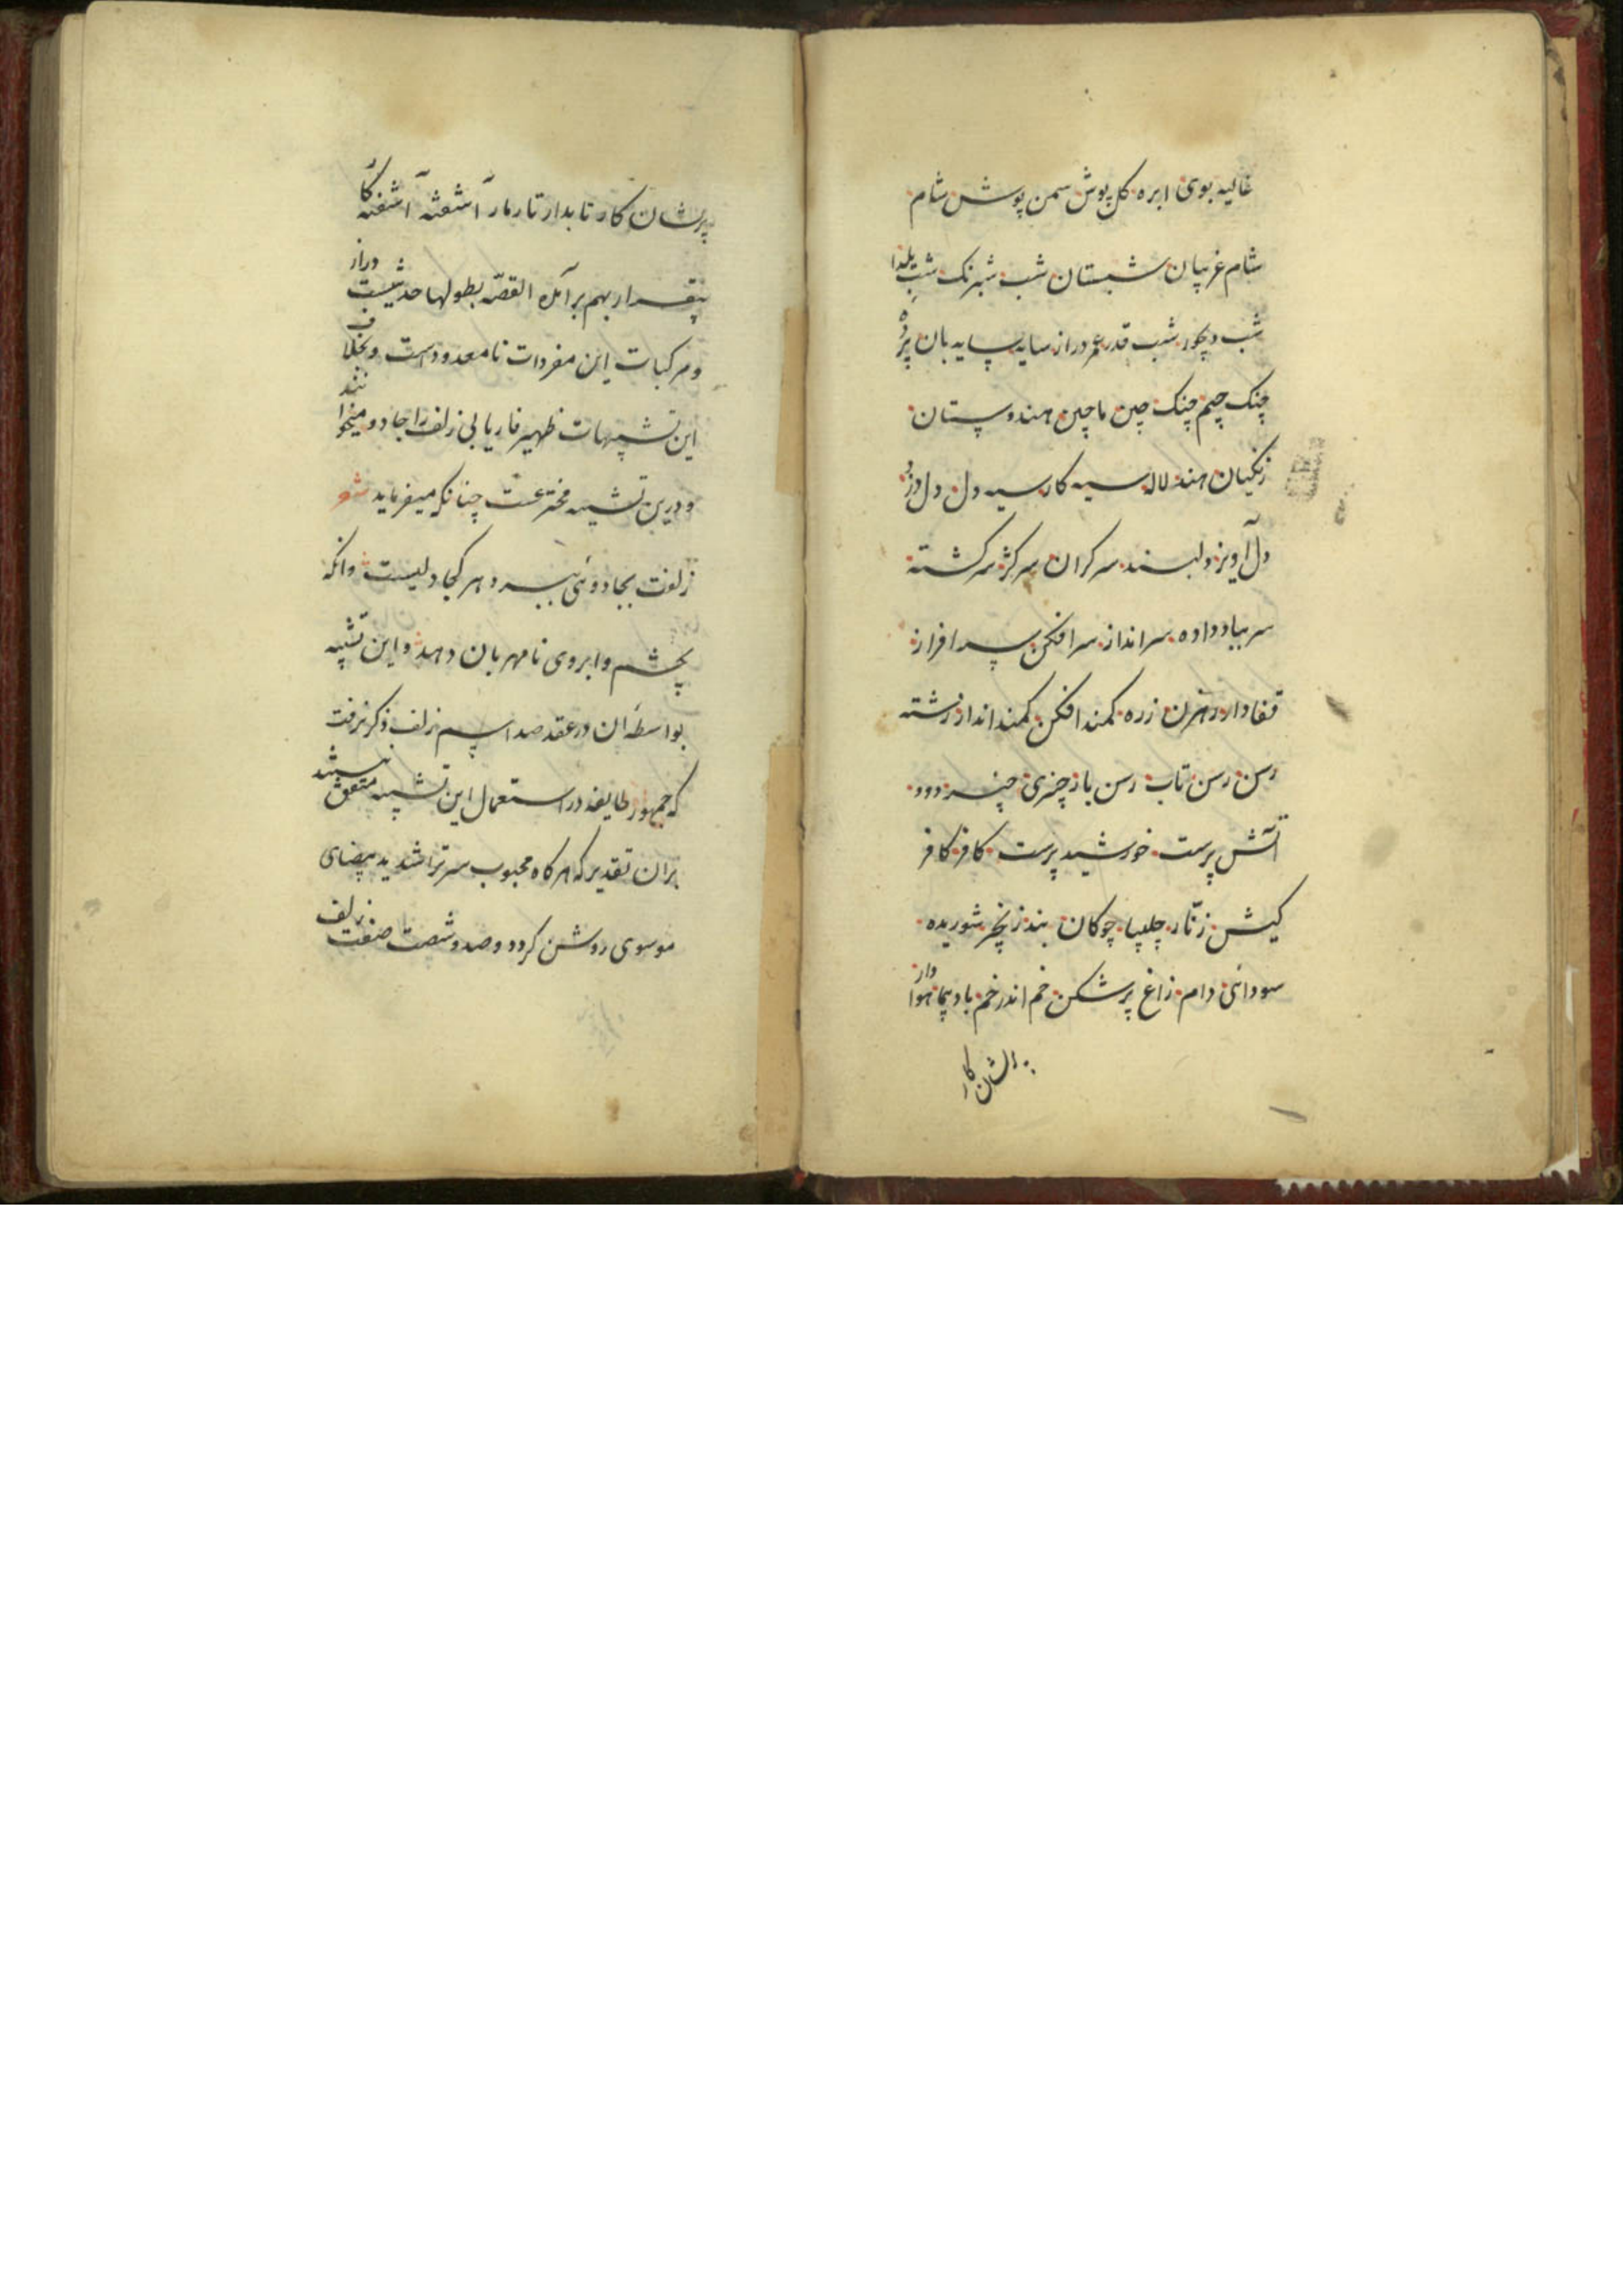 غالیه بوی ابره کل پوش سمن پوش شام
شام غریبان شبستان شب شبرنک شب یلدا
شب دیجور شب قدر عمر دراز سایه سایه بان پرده
چنک جیم چنک چین ماچین هندوستان
زنکیان هند لاله سیه کار سیه دل دل دزد
دل آویز دلبند سرکران سرکژ سرکشته
سر بباد داده سرانداز سرافکن سرافراز
قفادار رهزن زره کمند افکن کمند انداز رشته
رسن رسن تاب رسن باز چنبری چنبر دود
آتش پرست خورشید پرست کافر کافر
کیش زنّار چلیپا چوکان بند زنجیر شوریده
سودائی دام زاغ پرشکن خم اندر خم باد پیما هوادار
پریشان کار
پریشان کار تابدار تارمار آشفته آشفته کار
بیقرار بهم برآمده القصّه بطولها حدیثیست دراز
ومرکبات این مفردات نامعدودست وبخلاف
این تشبیهات ظهیر فاریابی زلف را جادو میخوانند
ودرین تشبیه مخترعست چنانکه میفرماید شعر
زلفت بجادوئی ببرد هر کجا دلیست وانکه
بچشم وابروی نامهربان دهد واین تشبیه
بواسطه آن در عقد صد اسم زلف ذکر نرفت
که جمهور طایفه در استعمال این تشبیه متفق نیستند
بران تقدیر که هرکاه محبوب سر تراشد ید بیضای
موسوی روشن کردد وصد وشصت صفت زلف